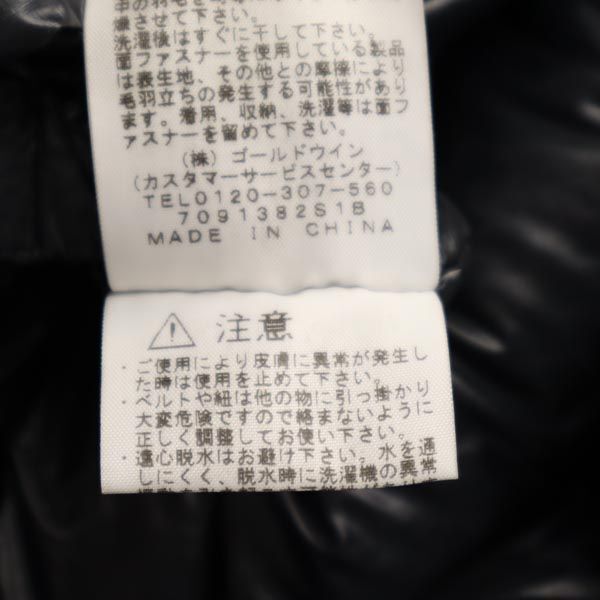 中の羽毛を
燥させて下さい。
洗濯後はすぐに干して下さい。
面ファスナーを使用している製品
は表生地、その他との摩擦により
毛羽立ちの発生する可能性があり
ます。着用、収納、洗濯等は面フ
ァスナーを留めて下さい。
(株)ゴールドウイン
(カスタマーサービスセンター)
TEL0120-307-560
7091382S1B
MADE IN CHINA
注意
・ご使用により皮膚に異常が発生し
た時は使用を止めて下さい。
・ベルトや紐は他の物に引っ掛かり
大変危険ですので絡まないように
正しく調整してお使い下さい。
・遠心脱水はお避け下さい。水を通
しにくく、脱水時に洗濯機の異常